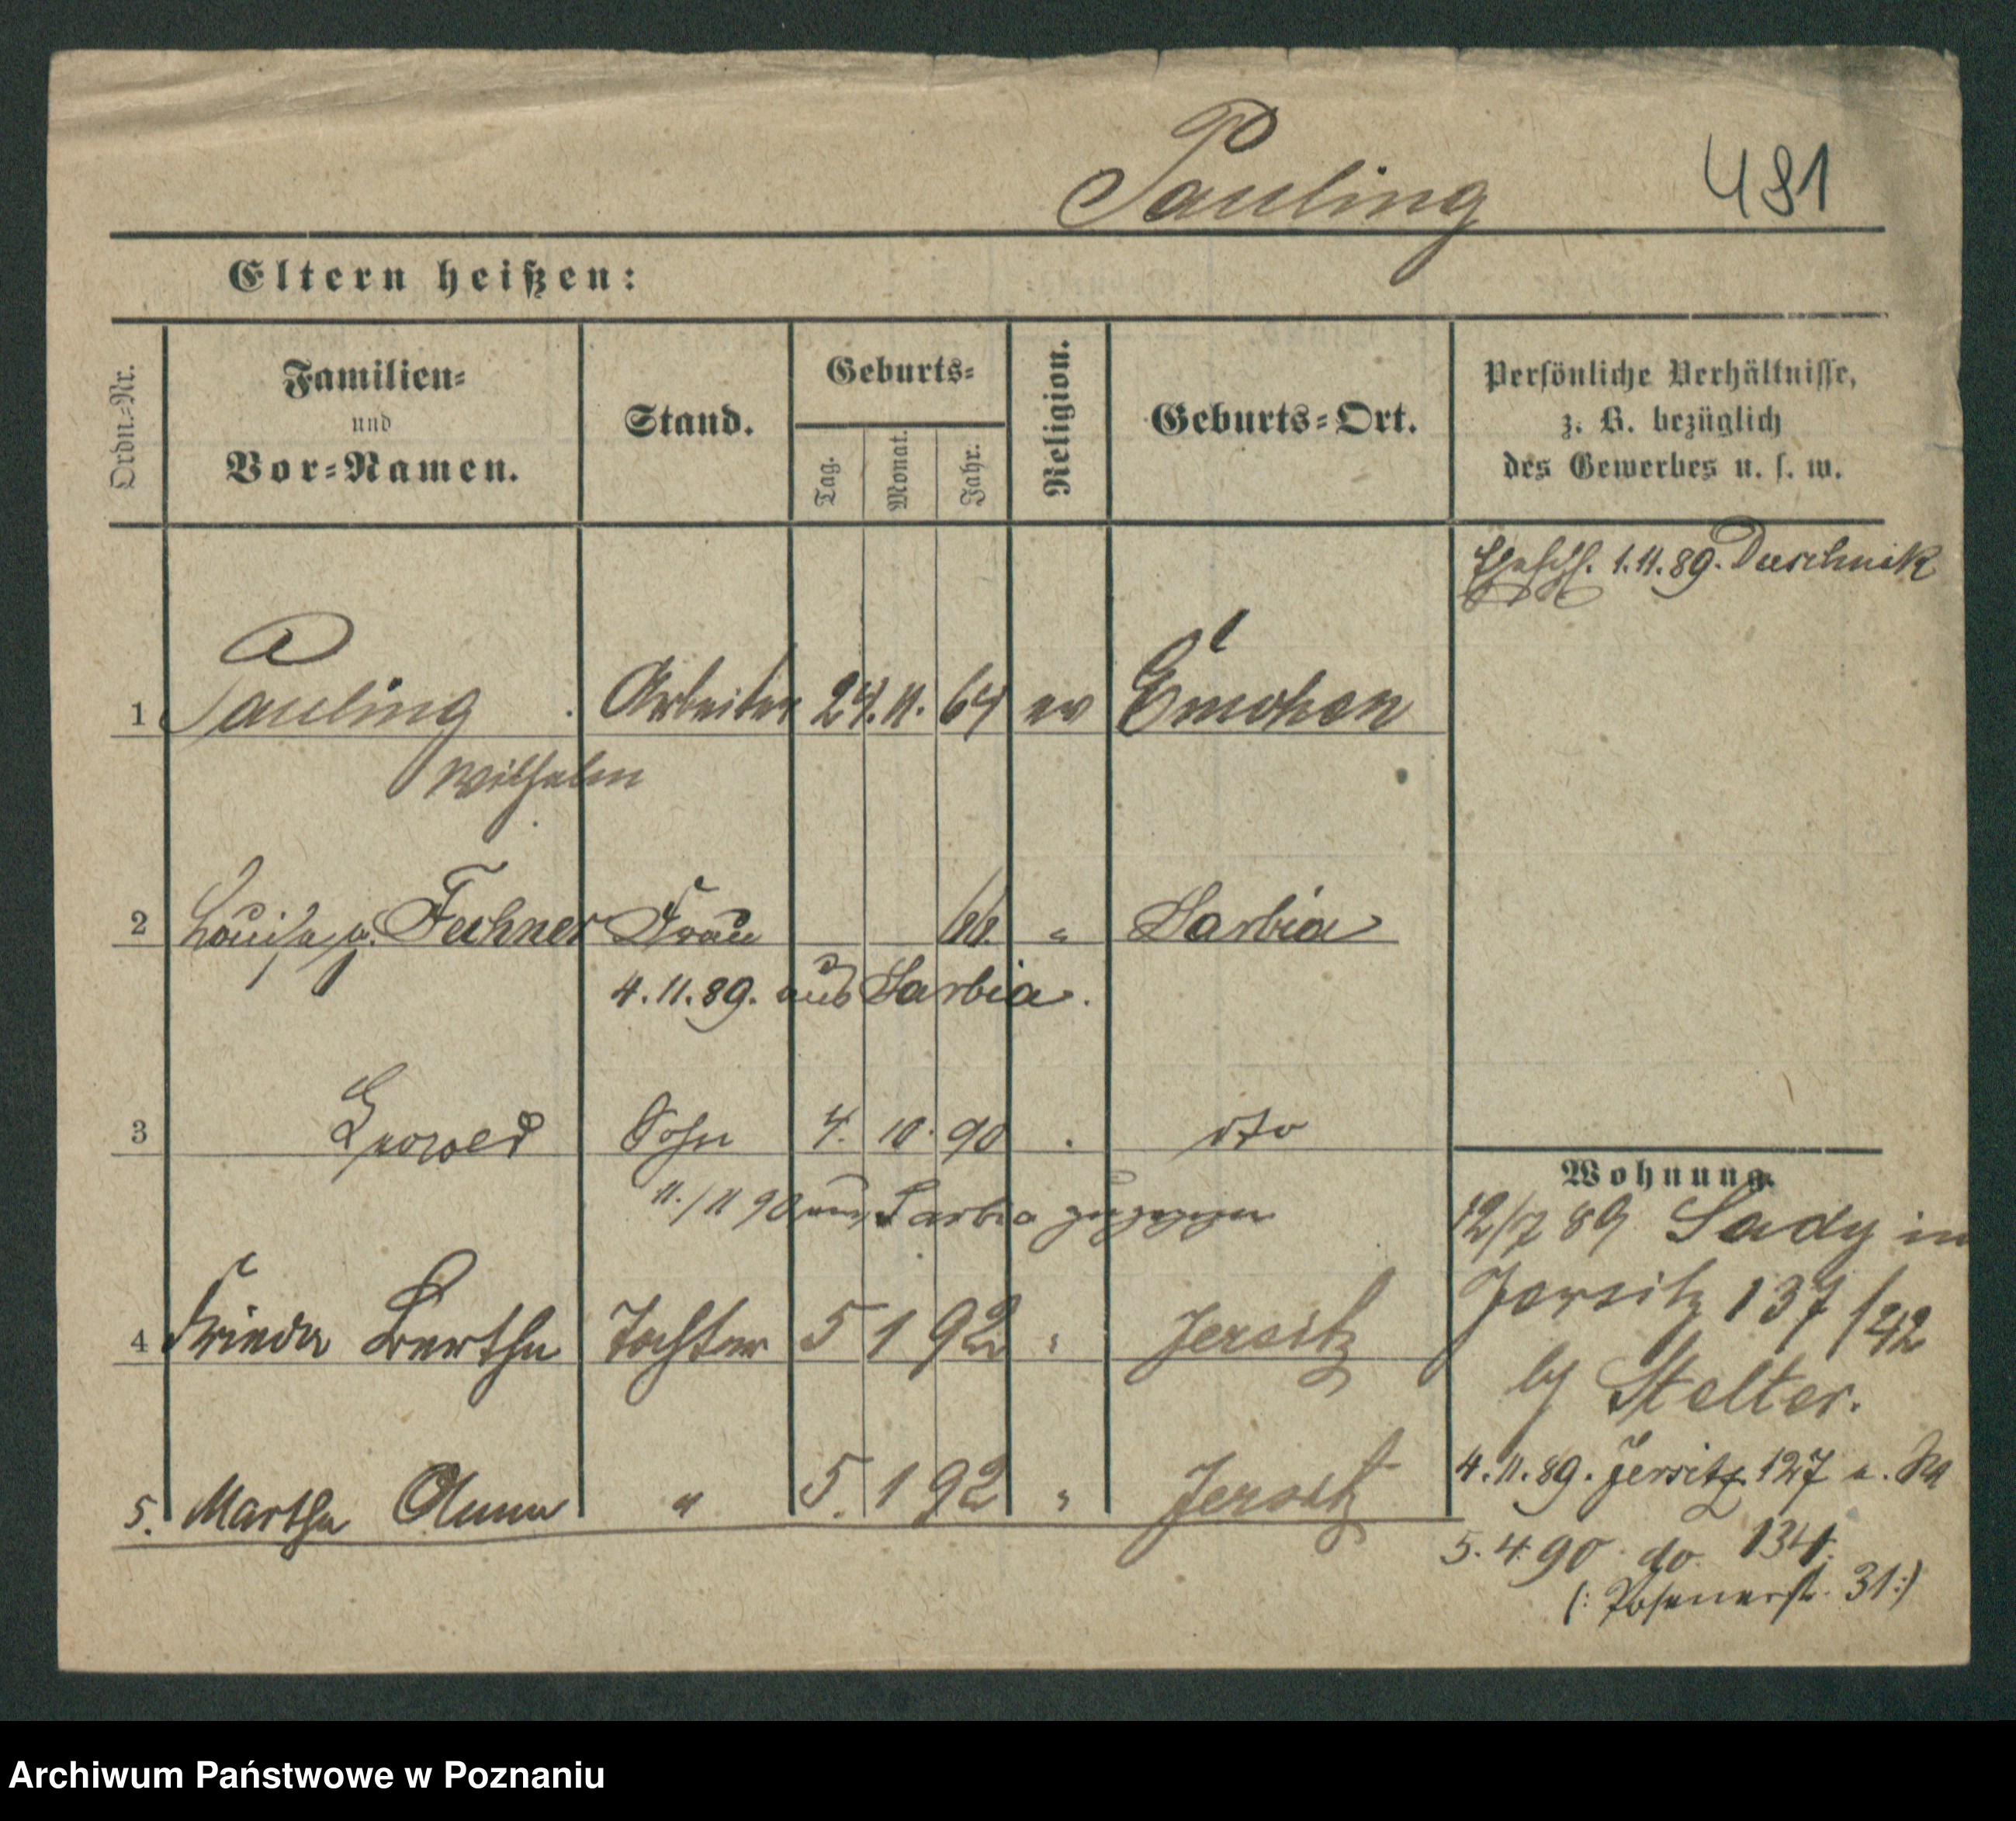 Pauling 481
Eltern heißen:
Ordn.-Nr.
Familien-
und
Vor-Namen.
Stand.
Geburts-
Tag.
Monat.
Jahr.
Religion.
Geburts-Ort.
Persönliche Verhältnisse,
z. B. bezüglich
des Gewerbes u. s. w.
1.11.89. Duschnik
1 Pauling Arbeiter 24. 11. 64 ev
Wilhelm
2 Louise g. Fechner Frau 66. " Sarbia
4.11.89. aus Sarbia.
3 Sohn 4. 10. 90 dto
11./11 90 aus Sarbia zugezogen
4 Frieda Bertha Tochter 5 1 92 " Jersitz
5. Martha Anna " 5. 1 92 " Jersitz
Wohnung.
12/7 89 Sady in
Jersitz 137/42
by Stelter.
4.11.89. Jersitz 127
5.4.90. do. 134.
(: Posenerst. 31:)
Archiwum Państwowe w Poznaniu